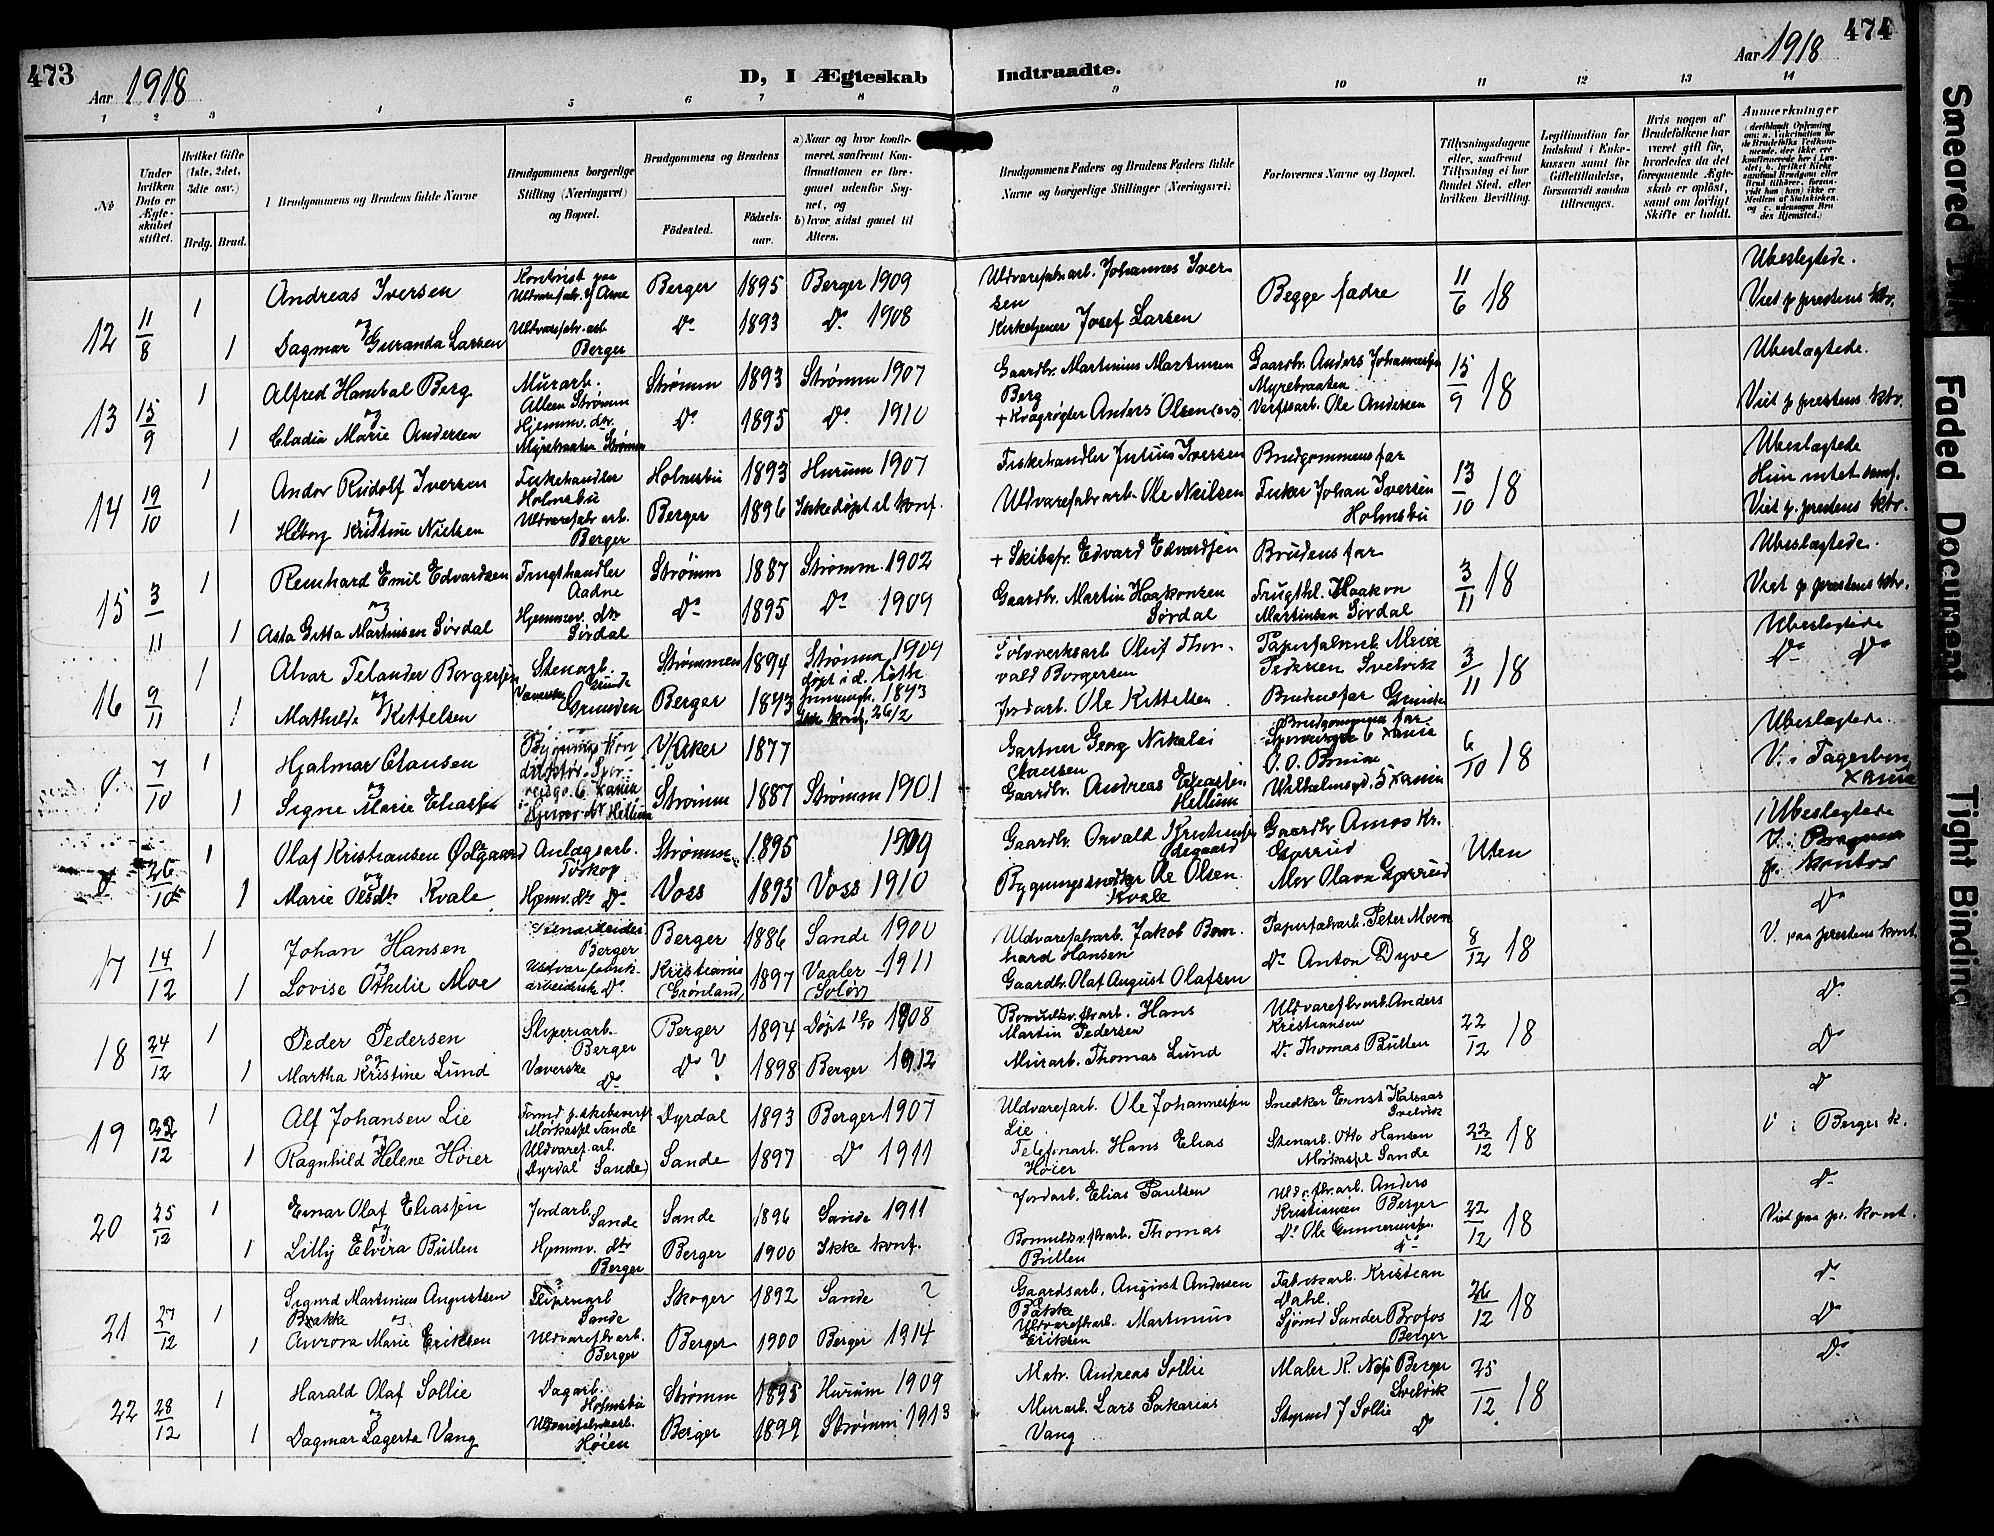 473
Aar 1918
D, I Ægteskab
Indtraadte.
Aar 1918
474
1 2 3 4 5 6 7 8 9 10 11 12 13 14
No
Under hvilken Dato er Ægteskabet stiftet.
Hvilket Gifte (1ste, 2det, 3die osv.)
Brdg. Brud.
Brudgommens og Brudens fulde Navne
Brudgommens borgerlige Stilling (Næringsvei) og Bopæl.
Brudgommens og Brudens
Födested.
Födselsaar.
a) Naar og hvor konfirmeret, saafremt Konfirmationen er foregaaet udenfor Sognet, og
b) hvor sidst gaaet til Alters.
Brudgommens Faders og Brudens Faders fulde Navne og borgerlige Stillinger (Næringsvei).
Forlovernes Navne og Bopæl.
Tillysningsdagene eller, saafremt Tillysning ei har fundet Sted, efter hvilken Bevilling.
Legitimation for Indskud i Enkekassen samt for Giftetilladelse, forsaavidt saadan tiltrænges.
Hvis nogen af Brudefolkene har været gift før, hvorledes da det foregaaende Ægteskab er opløst, samt om lovligt Skifte er holdt.
Anmerkninger
12 11/8 1 Andreas Iversen
Kontorist paa Uldvarefab.
Berger 1895 Berger 1909
Uldvarefabrarb. Johannes Iversen
Begge fædre
11/6 18
Ubeslegtede.
Viet p prestens ktr.
og
1 Dagmar Guranda Larsen
Uldvarefabr. arb Berger
Do 1893 Do 1908
Kirketjener Josef Larsen
13 15/9 1 Alfred Hanibal Berg
Murarb. Alleen Strømm
Strømm 1893 Strømm 1907
Gaardbr. Martinius Martinsen Berg
Gaardbr. Anders Johannessen Myrebraaten
15/9 18
Ubeslægtede.
Viet p prestens ktr.
og
1 Cladia Marie Andersen
Hjemmv. dtr. Myrebraaten Strømm
Do 1895 Do 1910
+ Kvægrøgter Anders Olsen
Verftsarb. Ole Andersen
14 19/10 1 Andor Rudolf Iversen
Fiskehandler Holmsbu
Holmsbu 1893 Hurum 1907
Fiskehandler Julius Iversen
Brudgommens far
13/10 18
Ubeslegtede
Viet p. prestens ktr.
og
1 Kristine Nielsen
Uldvarefabr arb. Berger
Berger 1896 Ikke døpt el konf.
Uldvarefabrarb. Ole Neilsen
Fisker Johan Iversen Holmsbu
15 3/11 1 Reinhard Emil Edvardsen
Frugthandler Aadne
Strømm 1887 Strømm. 1902
+ Skibsfr. Edvard Edvardsen
Brudens far
3/11 18
Ubeslegtede.
Viet p prestens ktr.
og
1 Asta Gitta Martinsen Sørdal
Hjemmev. dtr Sørdal
Do 1895 Do 1909
Gaardbr. Martin Haakonsen Sørdal
Frugthl. Haakon Martinsen Sørdal
16 9/11 1 Alvar Telander Borgersen
Stenarb. Grunde
Strømmen 1894 Strømm 1909
Sølvverksarb Oluf Thorvald Borgersen
Pedersen Svelvik
3/11 18
Ubeslegtede
Do Do
og
1 Mathilde Kittelsen
Grunden
Berger 1893
Jordarb. Ole Kittelsen
Brudens far Grunde
7/10 1 Hjalmar Clausen
V. Aker 1877
Gartner Georg Nikolai Clausen
Brudgommens far
6/10 18
Ubeslegtede.
V. i Fagerborg Xania
og
1 Signe Marie Eliassen
Hjemmv. dtr Hellum
Strømm 1887 Strømm 1901
Gaardbr. Andreas Eliassen Hellum
Wilhelmsgd. 5 Xania
26/10 1 Olaf Kristiansen Ødegaard
Anlægsarb. Torkop
Strømm 1895 1909
Gaardbr. Osvald Kristiansen Ødegaard
Gaardbr Amos Kr. Gjerrud
Uten
Ubeslegtede
pr. kontor
og
1 Marie Olsdtr Kvale
Hjemv. dtr Do
Voss 1895 Voss 1910
Bygningssnedker Ole Olsen Kvale
Olava Gjerrud
Do
17 14/12 1 Johan Hansen
Berger
Berger 1886 Sande 1900
Uldvarefabrarb. Jakob Bernhard Hansen
Papirfabrarb. Peter Moen
8/12 18
V. paa prestens kont.
og
1 Lovise Othelie Moe
Uldvarefabrikarbeiderske Do
Kristiania (Grønland) 1897 Vaaler 1911 (Solør)
Gaardbr. Olaf August Olafsen
Do Anton Dyve
Do
18 24/12 1 Peder Pedersen
Sliperiarb. Berger
Berger 1894 Døpt 10/10 1908
Bomuldsv.fbr.arb. Hans Martin Pedersen
Uldvarefbr.arb Anders Kristiansen
22/12 18
og
1 Martha Kristine Lund
Væverske Do
Do ? 1898 Berger 1912
Murarb. Thomas Lund
Do Thomas Bullen
Do
19 22/12 1 Alf Johansen Lie
Dyrdal 1893 Berger 1907
Uldvarefarb. Ole Johannessen Lie
Snedker Ernst Kalsaas Svelvik
22/12 18
Do
V i Berger k.
og
1 Ragnhild Helene Høier
Uldvaref.arb. (Dyrdal Sande)
Sande 1897 Do 1911
Telefonarb. Hans Elias Høier
Stenarb. Otto Hansen Sande
20 25/12 1 Einar Olaf Eliassen
Jordarb. Sande
Sande 1896 Sande 1911
Jordarb. Elias Paulsen
Uldv.fbr.arb. Anders Kristiansen Berger
22/12 18
Do
Viet paa pr. kont.
og
1 Lilly Elvira Bullen
Hjemmv. dtr Berger
Berger 1900 Ikke konf.
Bomuldsv.fbrarb. Thomas Bullen
Do Ole Gunneriusen Do
21 27/12 1 Sigurd Martinius Augustsen Bakke
Sliperiarb Sande
Skoger 1892 Sande ?
Gaardsarb. August Andersen Bakke
Fabrikarb. Kristian Dahl
26/12 18
Do
Do
og
1 Aurora Marie Eriksen
Uldvarefbrarb. Berger
Berger 1900 Berger 1914
Uldvarefbrarb. Martinius Eriksen
Sjømd Sander Brofos Berger
22 28/12 1 Harald Olaf Sollie
Dagarb. Holmsbu
Strømm 1895 Hurum 1909
Matr. Andreas Sollie
Maler K. Næss Berger Svelvik
25/12 18
Do
og
1 Dagmar Lagerta Vang
Uldvarefabrikarb. Høien
Berger 1899 Strømm 1913
Murarb. Lars Sakarias Vang
Styrmd J Sollie Do
Smeared Ink
Faded Document
Tight Binding